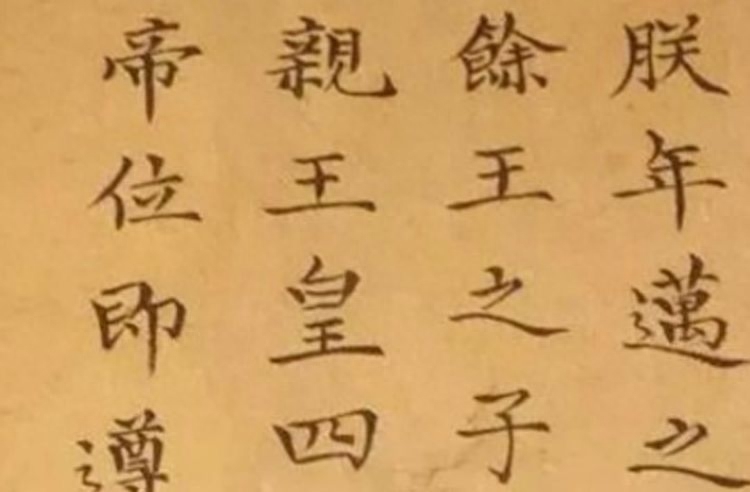 朕年邁之
餘王之子
親王皇四
帝位即遵